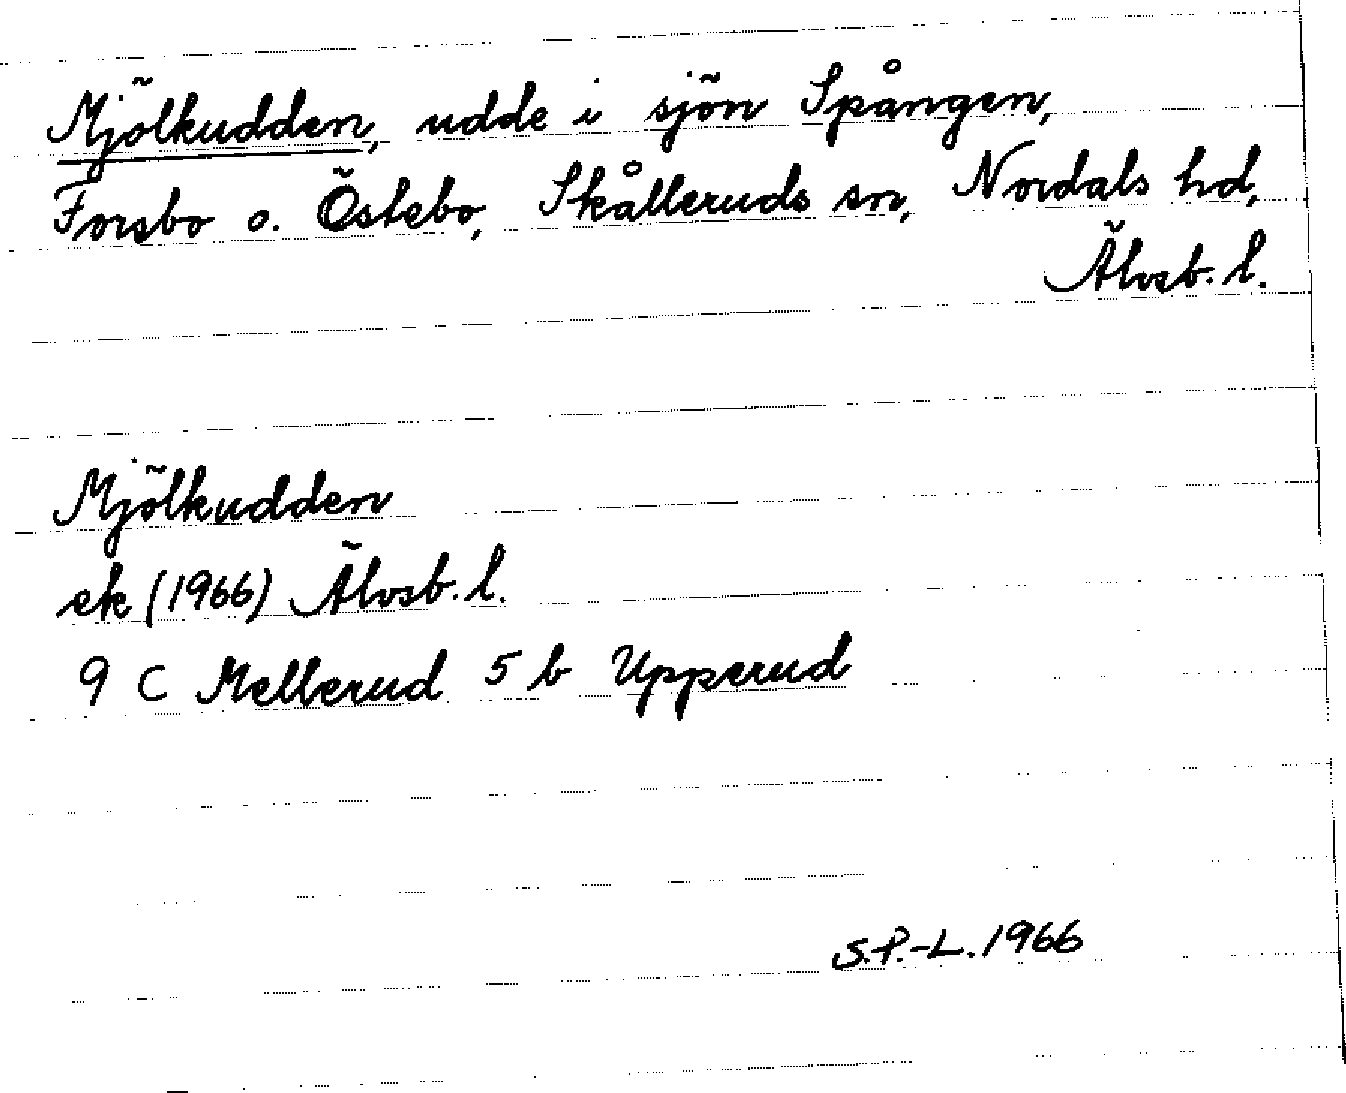 Mjölkudden, udde i sjön Spången,
Forsbo o. Östebo, Skålleruds sn, Nordals hd,
Älvsb. l.
Mjölkudden
ek (1966) Älvsb. l.
9 C Mellerud 5 b Upperud
S.P.-L. 1966